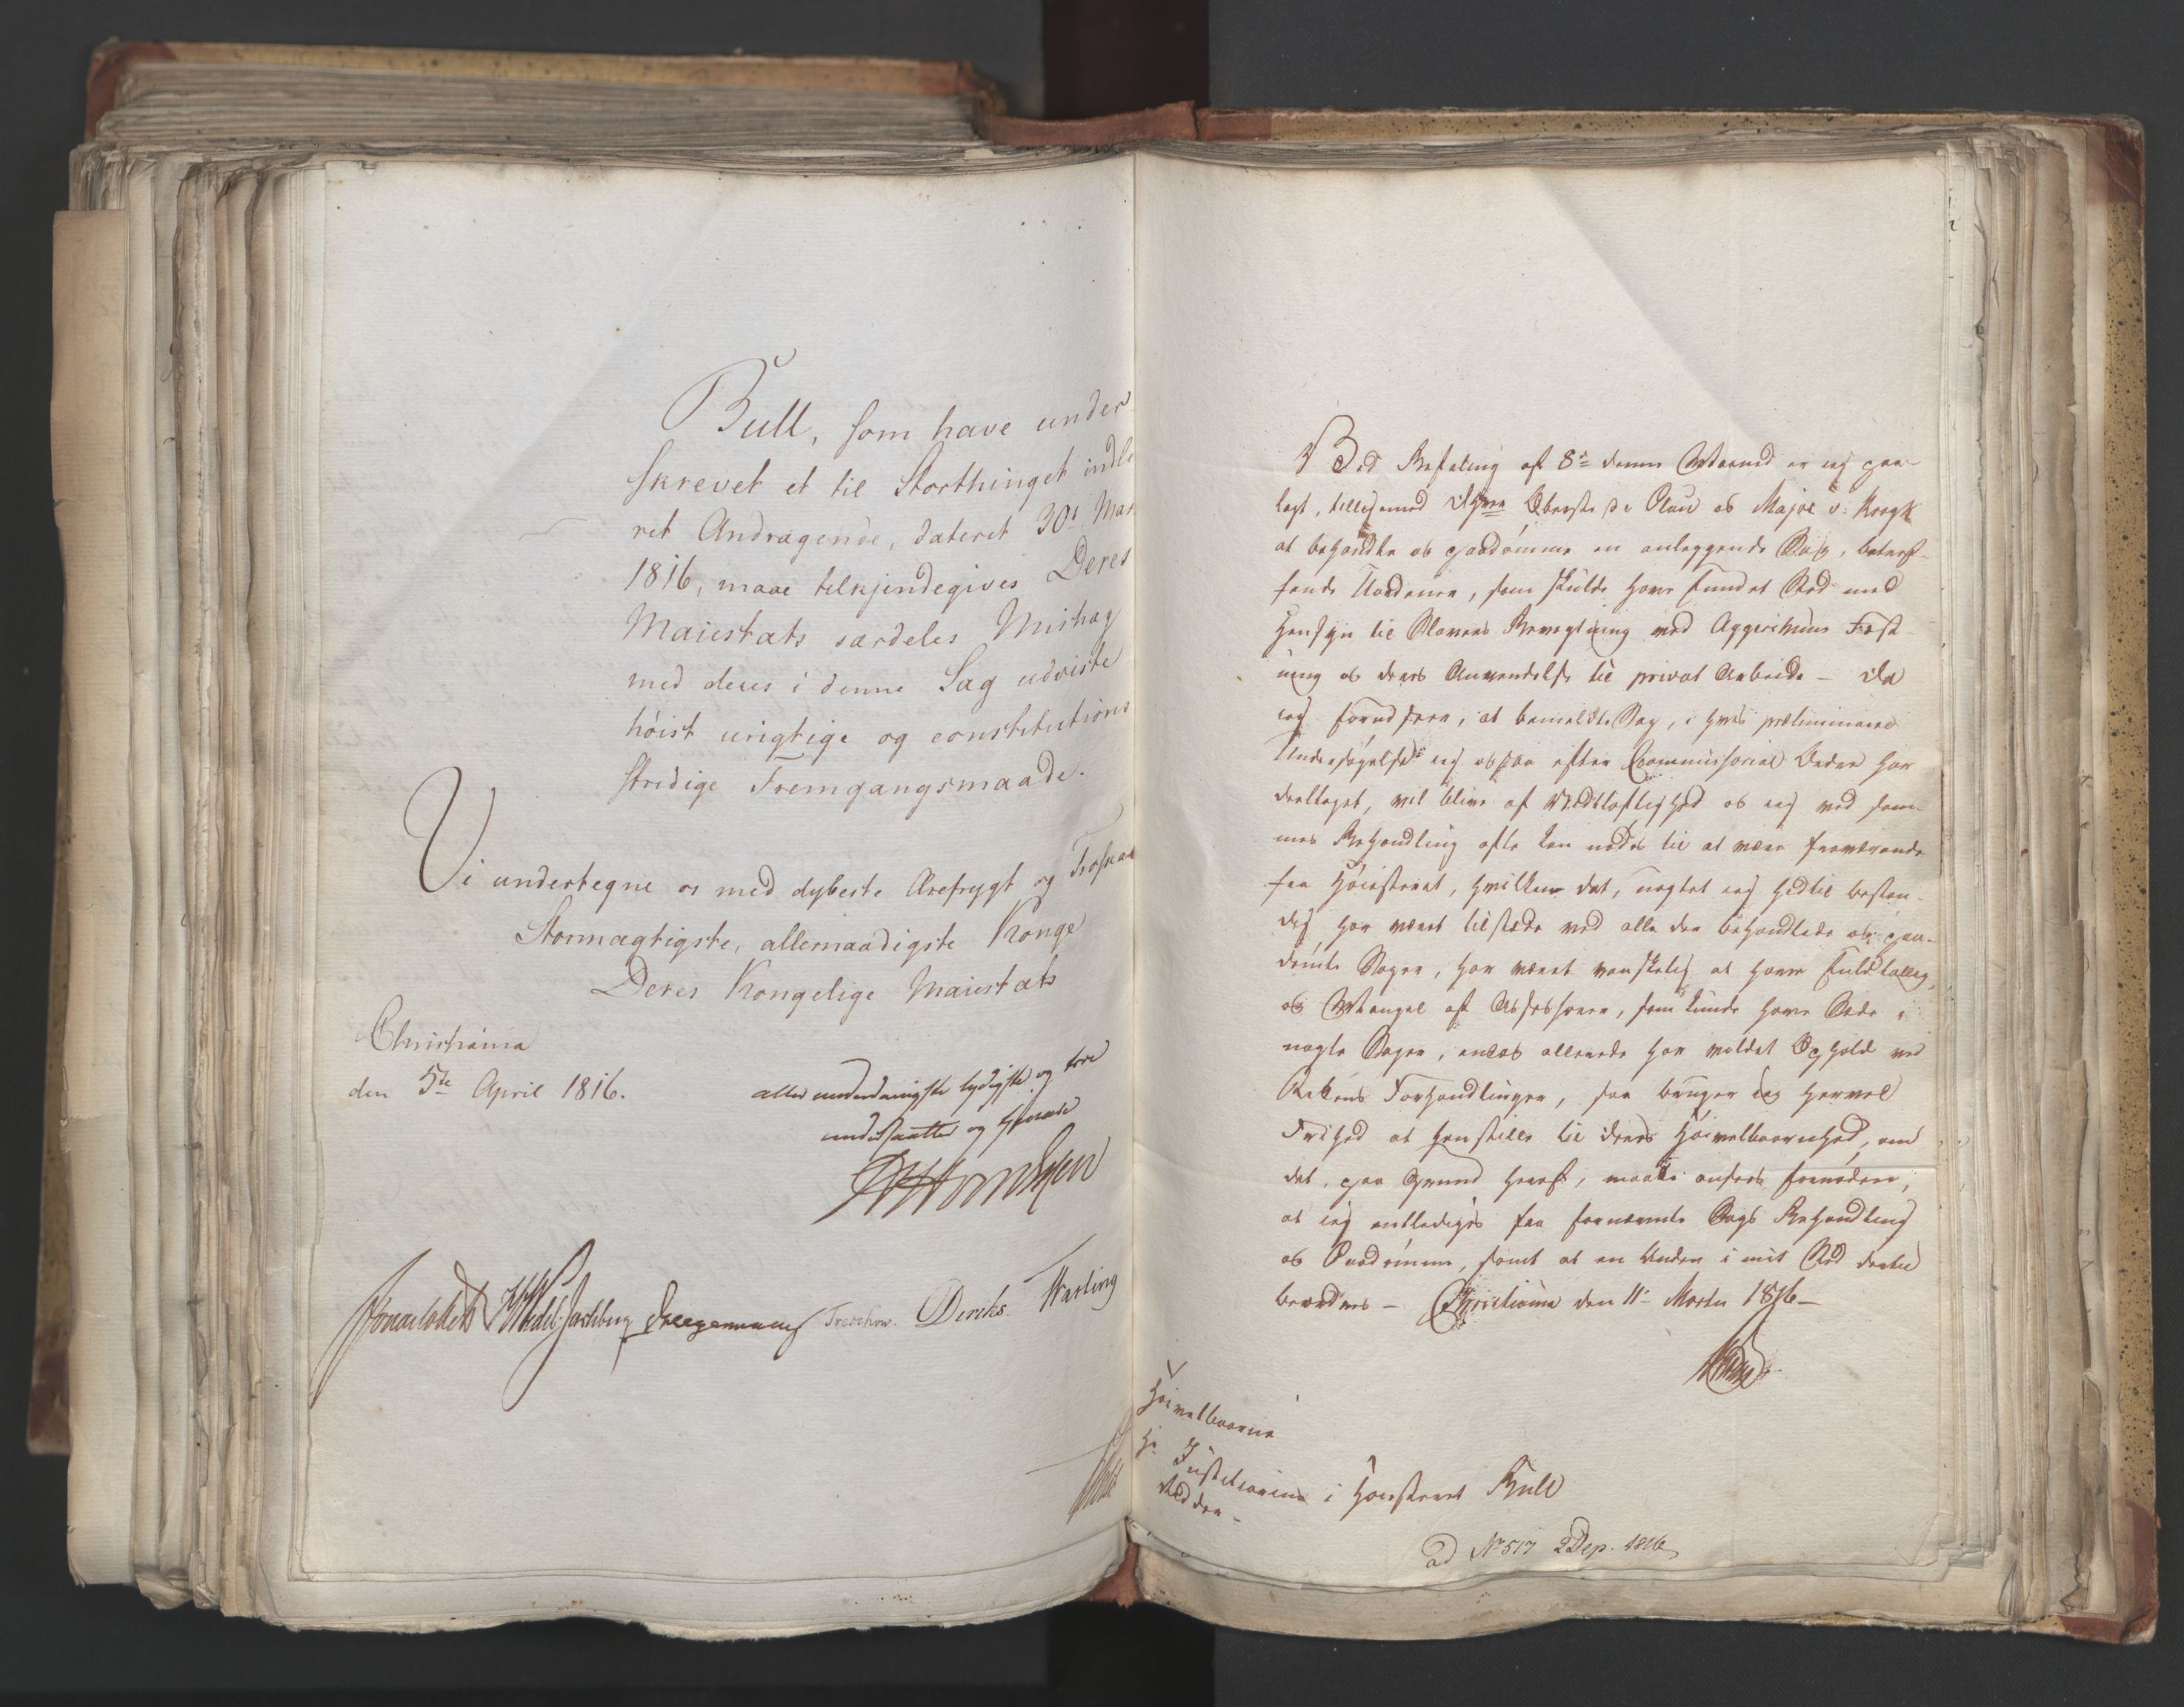 Bull, som have under
skrevet et til Storthinget indle
ret Andragende, dateret 30t Mar
1816, maae tilkjendegives Deres
Maiestæts særdeles Mishag
med deres i denne Sag udviste
høist urigtige og constitutions
stridige Fremgangsmaade.
Vi undertegne os med dybeste Ærefrygt og Troskab
Stormægtigste, allernaadigste Konge
Deres Kongelige Maiestæts
Christiania
den 5te April 1816.
allerunderdanigste lydigste og troe
undersaatter og tienere
Sommerhielm Wedel Jarlsberg Treschow. Diriks. Hasting
Ved Befaling af 8de denne Maaned er jeg paa-
lagt, tilligemed Obersterne de Seue og Major v: Krogh
at behandle og paadømme en anlæggende Sag, betref-
fende Uordener, som skulde have fundet Sted med
Hensyn til Slavers Bevogtning ved Aggershuus Fæst-
ning og deres Anvendelse til privat Arbeide - Da
jeg forudseer, at bemeldte Sag, i hvis præliminaire
Undersøgelse jeg ogsaa efter Commissorial Ordre har
deeltaget, vil blive af Vidtløftighed og jeg ved sam-
mes Behandling ofte kan nødes til at være fraværende
fra Høiesteret, hvilken det, uagtet jeg hidtil bestan-
dig har været tilstæde ved alle der behandlede og paa-
dømte Sager, har været vanskelig at have fuldtallig,
og Mangel af Assessorer, som kunde have Sæde i
nogle Sager, endog allerede har voldet Ophold ved
Rettens Forhandlinger, saa tager jeg herved
Frihed at henstille til Deres Høivelbaarenhed, om
det, paa Grund heraf, maatte ansees fornødent,
at jeg entlediges fra fornævnte Sags Behandling
og Paadømme, samt at en Anden i mit Sted dertil
beordres - Christiania den 11te Martii 1816 -
Høivelbaarne
Hr Justitiarius i Høiesteret Bull
Ridder -
ad No 517 2 Dep. 1816